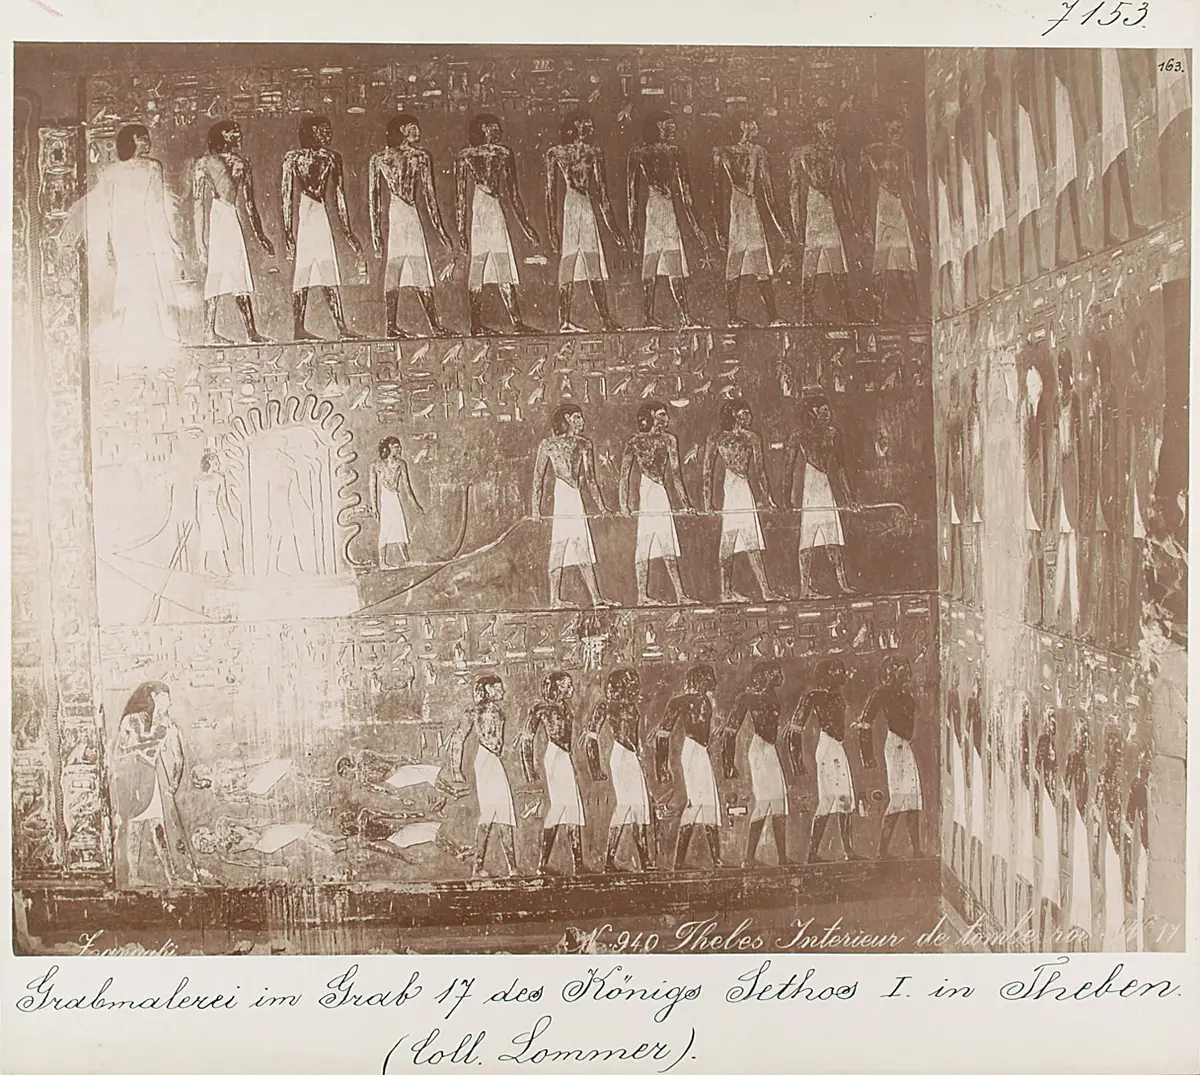 7153.
163.
Zangaki
N. 940 Thebes Interieur de tombe roi N° 17
Grabmalerei im Grab 17 des Königs Sethos I. in Theben.
(Coll. Lommer).